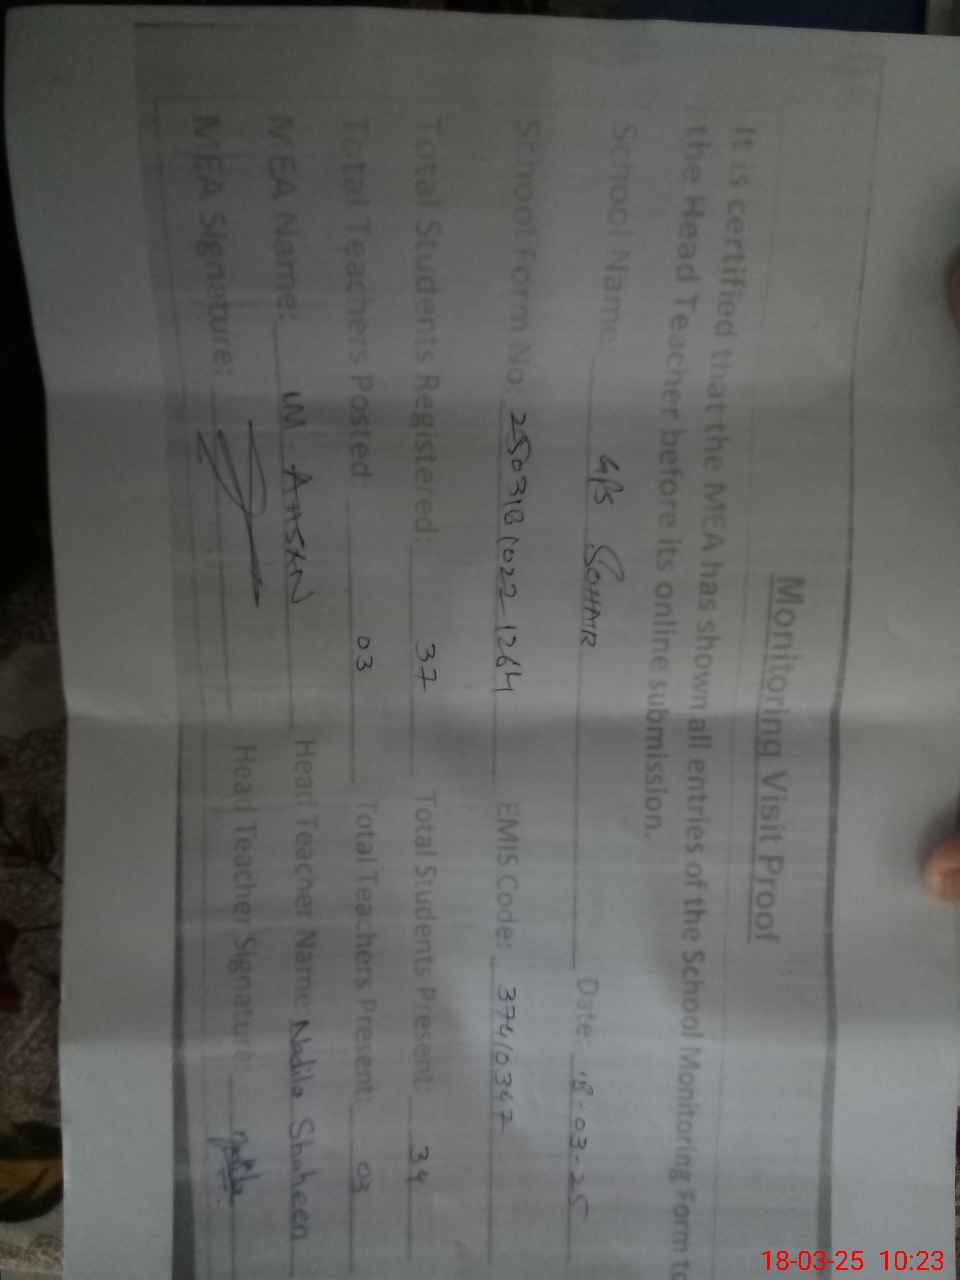 Monitoring Visit Proof
It is certified that the MEA has shown all entries of the School Monitoring Form to
the Head Teacher before its online submission.
School Name: GPS SOHAIR Date: 18-03-25
School Form No: 250318 1022 1264 EMIS Code: 37410347
Total Students Registered: 37 Total Students Present: 34
Total Teachers Posted 03 Total Teachers Present: 03
MEA Name: Head Teacher Name Nadila Shaheen
MEA Signature: Head Teacher Signature:
18-03-25 10:23